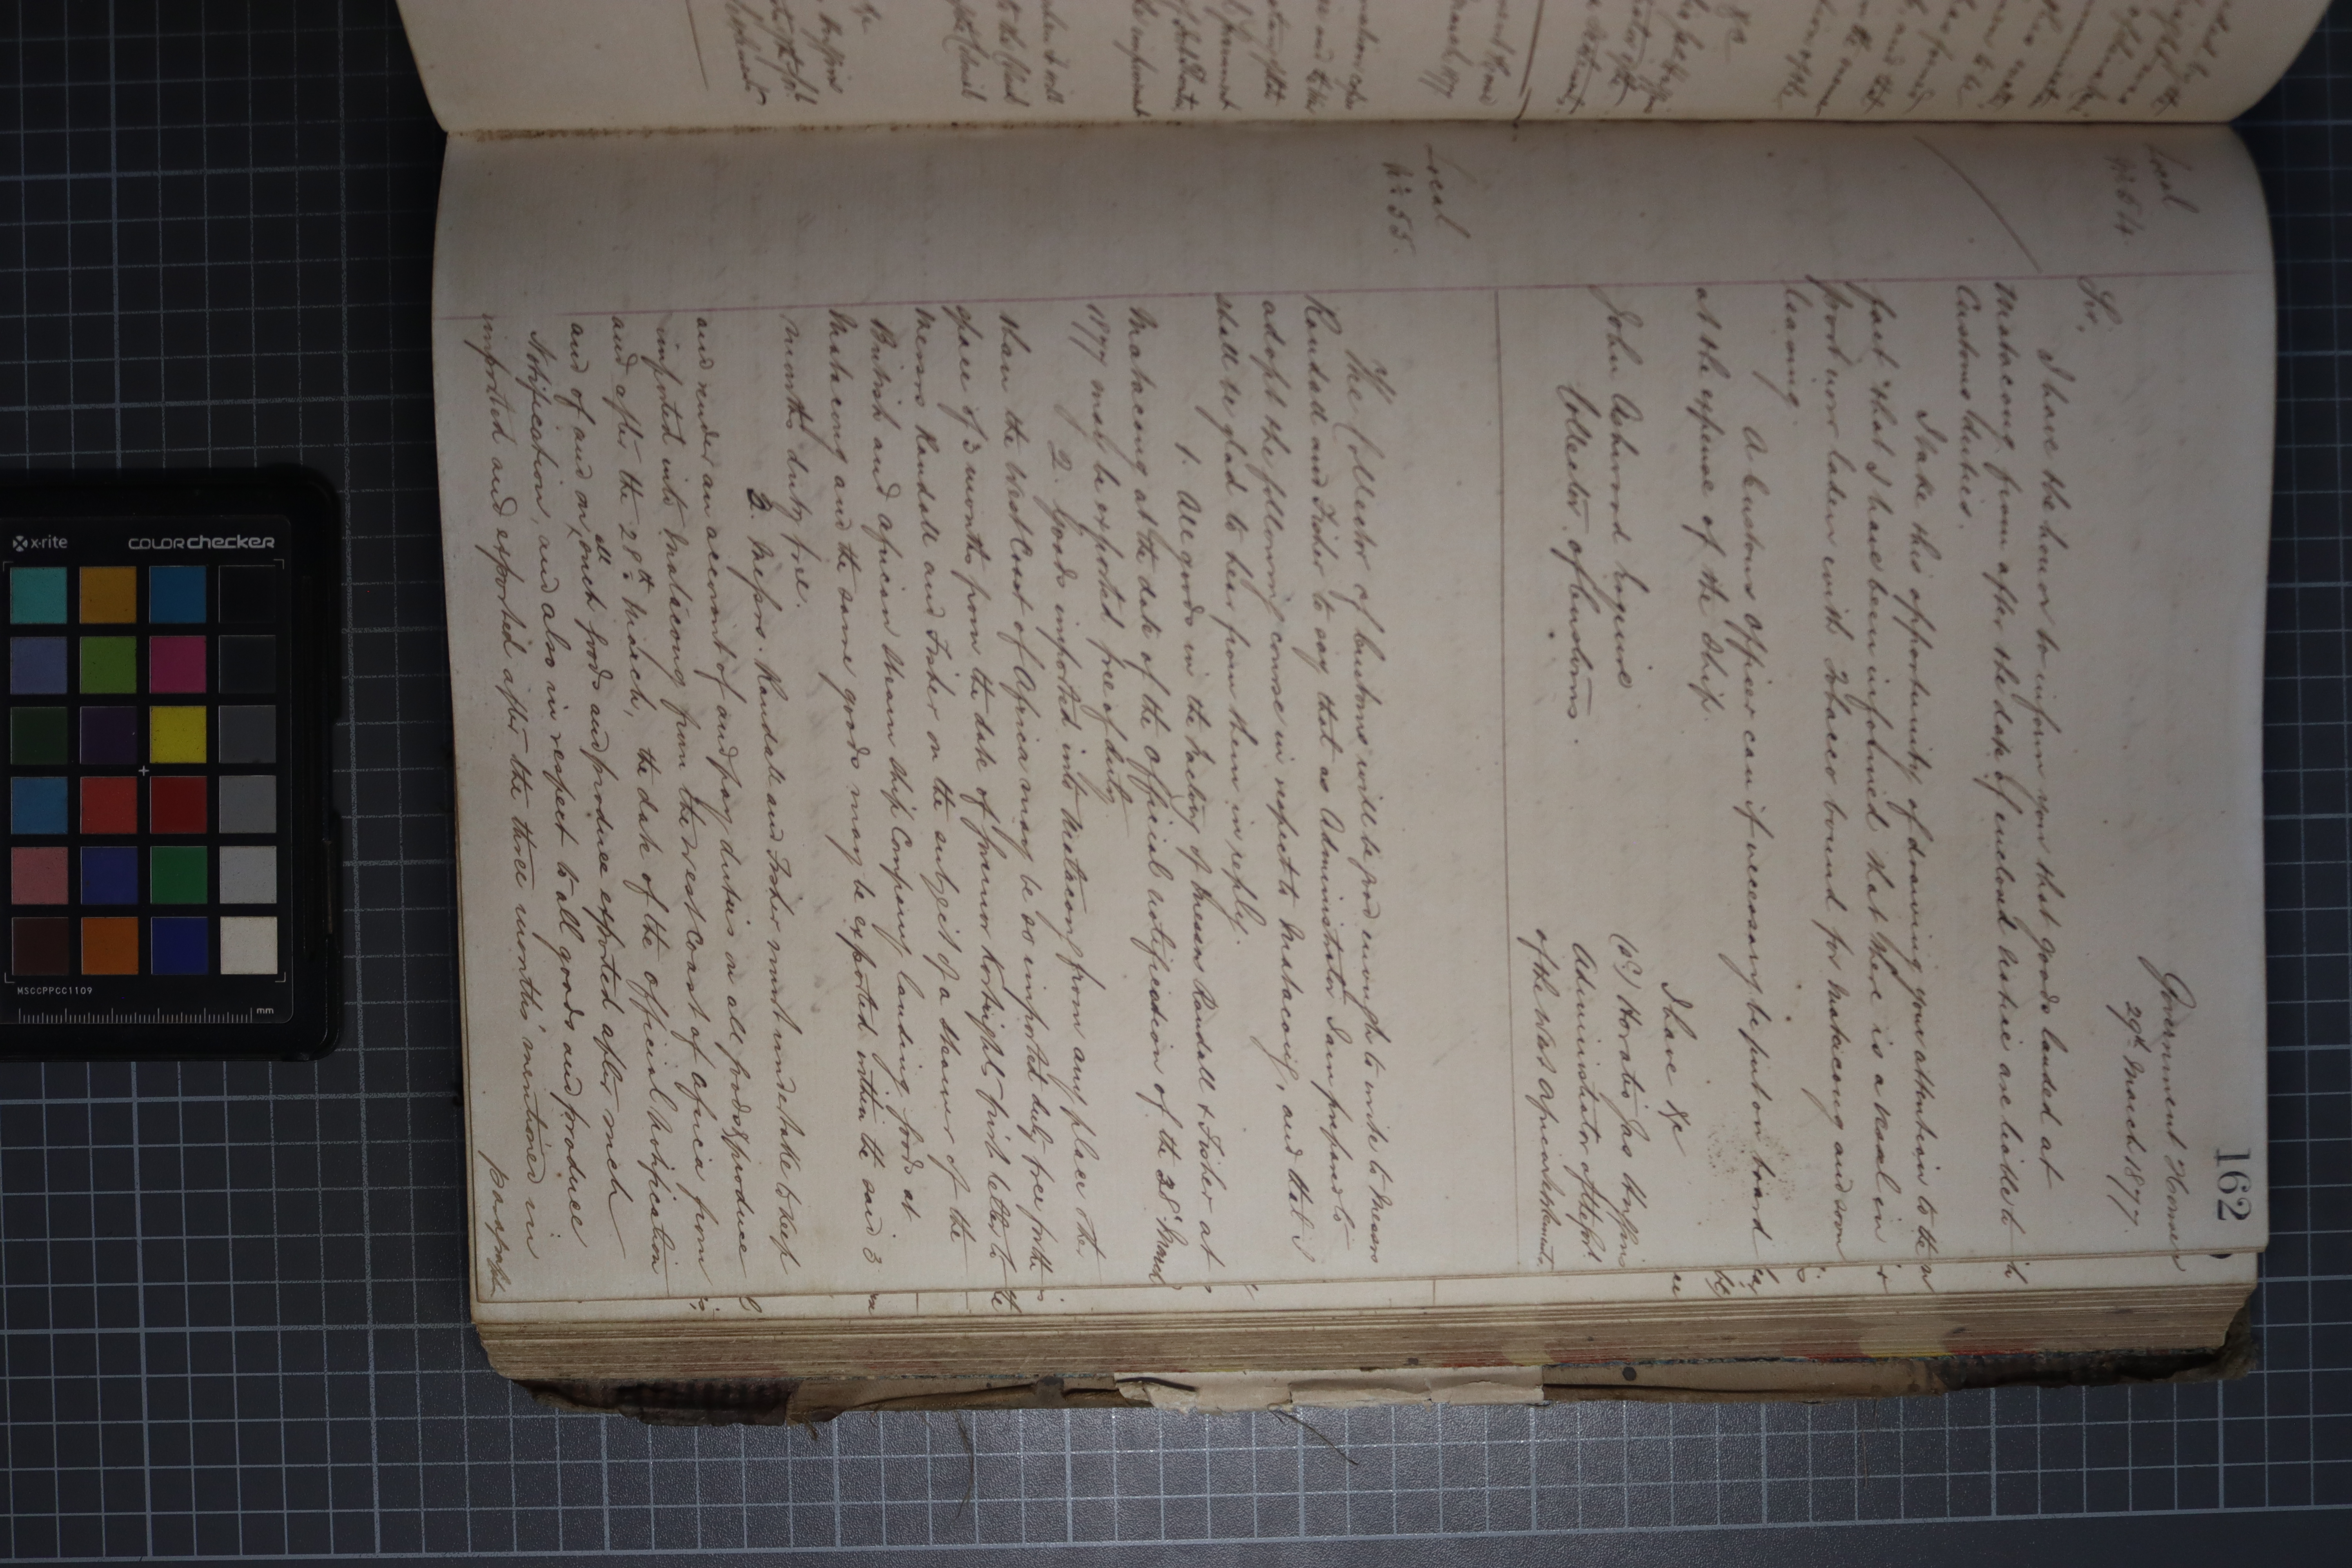 162
Government House
29th March 1877.
Local
No 54.
Sir,
I have the honor to inform you that goods landed at
Matacong from after the date of enclosed notice are liable to
Customs duties.
I take this opportunity of drawing your attention to the
fact that I have been informed that there is a vessel in
port now laden with Tobacco bound for Matacong and soon
leaving.
A Customs Officer can if necessary be put on board
at the expense of the ship.
I have &c
(sd) Horatio Jas Huggins
John Ashwood Esquire
Administrator of the Govt
Collector of Customs.
of the West African Settlements.
Local
No 55.
The Collector of Customs will be good enough to write to Messrs
Randall and Fisher to say that as Administrator I am prepared to
adopt the following course in respect to Matacong, and that I
shall be glad to hear from them in reply.
1. All goods in the factory of Messrs Randall & Fisher at
Matacong at the date of the Official notification of the 28th March
1877 may be exported free of duty.
2. Goods imported into Matacong from any place other
than the West Coast of Africa may be so imported duty free for the
space of 3 months from the date of Governor Kortright's first letter to
Messrs Randall and Fisher on the subject of a steamer of the
British and African Steam Ship Company landing goods at
Matacong and the same goods may be exported within the said 3
months duty free.
3. Messrs. Randall and Fisher must undertake to keep
and render an account of and pay duties on all goods & produce
imported into Matacong from the West Coast of Africa from
and after the 28th March, the date of the Official Notification
and of and on all such goods and produce exported after such
Notification, and also in respect to all goods and produce
imported and exported after the three months mentioned in
paragraph
x-rite
colorchecker
MSCCPPCC1109
mm